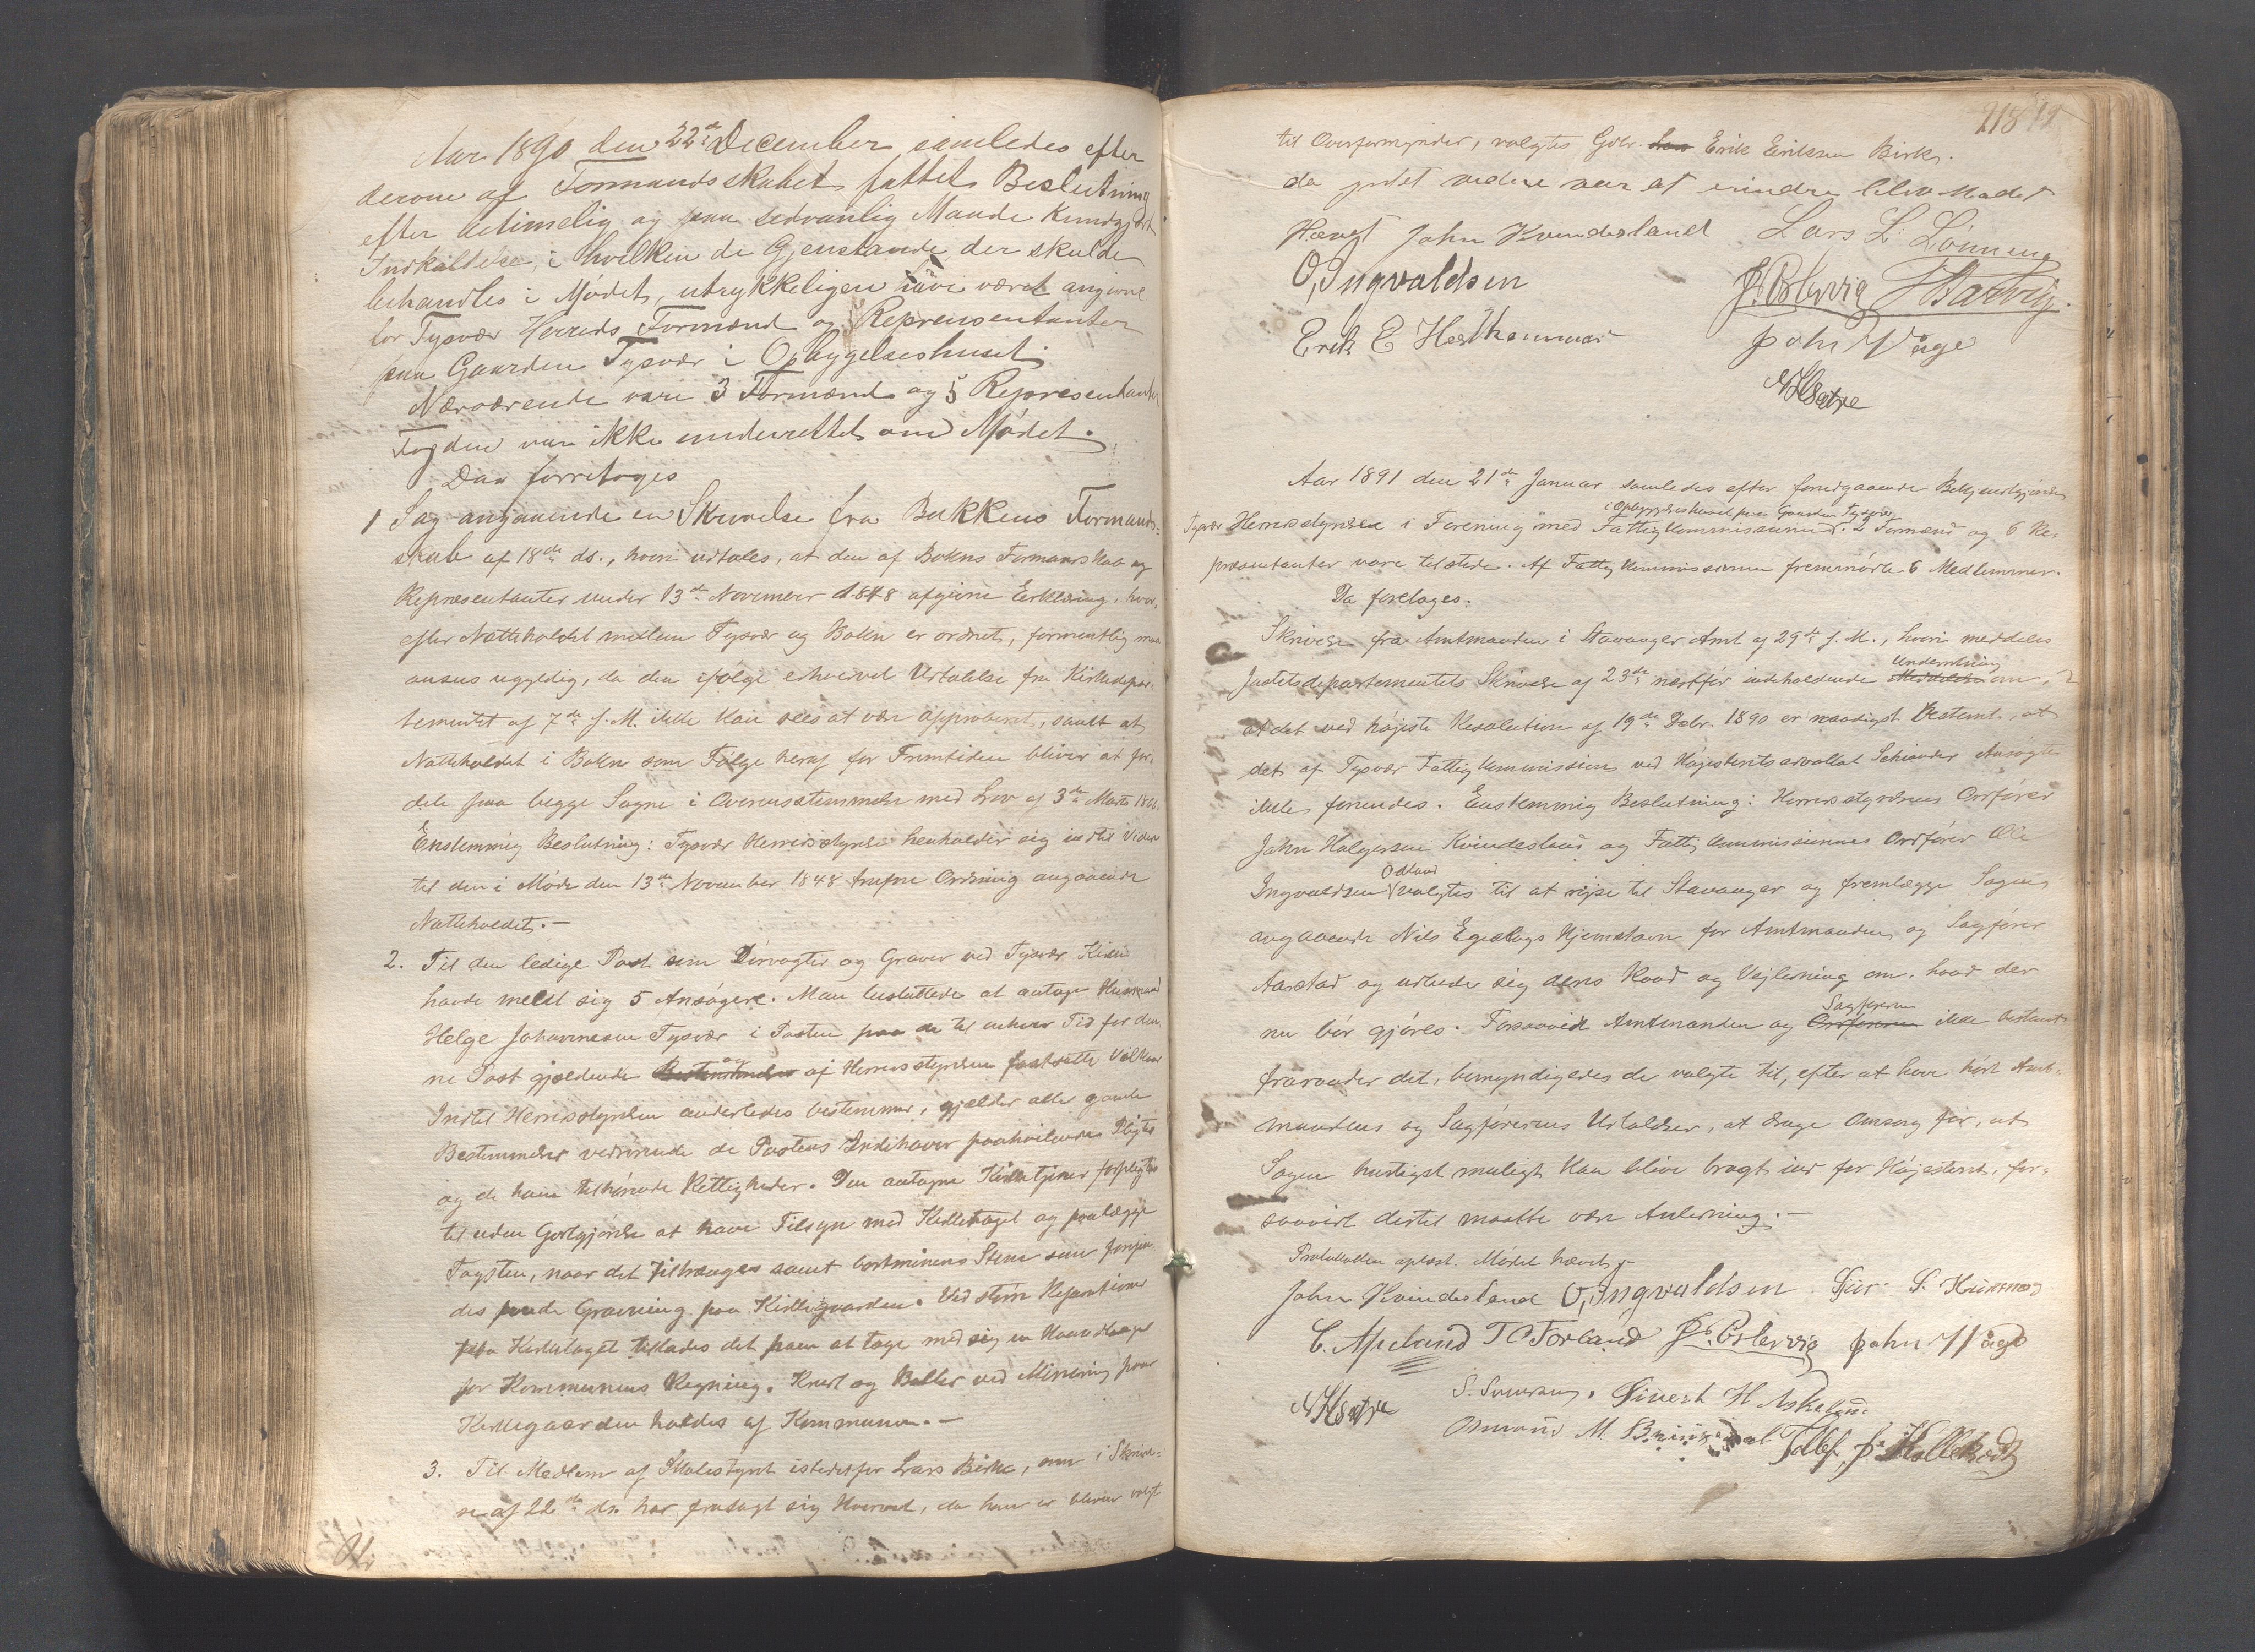 Aar 1890 den 22de December samledes efter
derom af Formandsskabet fattet Beslutning
efter betimelig og paa sedvanlig Maade Kundgjort
Indkaldelse, i hvilken de Gjenstande, der skulde
behandles i Mødet, utrykkeligen have været angivne
for Tysvær Herreds Formænd og Repræsentanter
paa Gaarden Tysvær i Opbyggelseshuset.
Nærværende vare 3 Formænd og 5 Repræsentanter
Fogden var ikke underrettet om Mødet.
Da foretoges
1 Sag angaaende en Skrivelse fra Bukkens Formand-
skab af 18de ds., hvori udtales, at den af Bokns Formandskab og
Repræsentanter under 13de November 1848 afgivne Erklæring, hvor-
efter Natteholdet mellem Tysvær og Bokn er ordnet, formentlig maa
ansees ugyldig, da den ifølge erhvervet Udtalelse fra Kirkedepar-
tementet af 7de f. M. ikke kan sees at være approberet, samt at
Natteholdet i Bokn som Følge heraf for Fremtiden bliver at for-
dele paa begge Sogne i Overensstemmelse med Lov af 3de Marts 1866.
Enstemmig Beslutning: Tysvær Herredsstyrelse henholder sig indtil Videre
til den i Møde den 13de November 1848 trufne Ordning angaaende
Natteholdet.—
2. Til den ledige Post som Dørvogter og Graver ved Tysvær Kirke
havde meldt sig 5 Ansøgere. Man besluttede at antage Husmand
Helge Johannesen Tysvær i Posten paa de til enhver Tid for den-
ne Post gjældende og af Herredsstyrelsen fastsatte Vilkaar
Indtil Herredsstyrelsen anderledes bestemmer, gjælder alle gamle
Bestemmelser vedrørende de Postens Indehaver paahvilende Pligter
og de ham tilhørende Rettigheder. Den antagne Kirketjener forpligtes
til uden Godtgjørelse at have Tilsyn med Kirketaget og paalægge
Tagsten, naar det tiltrænges samt bortminere Stene som forefin-
des under Gravning paa Kirkegaarden. Ved større Reparationer
paa Kirketaget tillades det ham at tage med sig en Haandlanger
for Kommunens Regning. Krudt og Bolter ved Minering paa
Kirkegaarden holdes af Kommunen.—
3. Til Medlem af Skolestyret istedetfor Lars Birke, som i Skrivel-
se af 22de ds. har frasagt sig Hvervet, da han er bleven valgt
218
til Overformynder, valgtes Gdbr. Erik Eriksen Birke.
da intet videre var at erindre blev Mødet
Hævet John Kvindesland Lars L. Lönning
O, Ingvaldsen J. Østervig Hartvig.
Erik E Hesthammer John Våge
N H Sætre
Aar 1891 den 21de Januar samledes efter foregaaende Bekjendtgjørelse
i Opbyggelseshuset paa Gaarden Tysvær
Tysvær Herredsstyrelse i Forening med Fattigkommissionen. 2 Formænd og 6 Re-
præsentanter vare tilstede. Af Fattigkommissionen fremmødte 6 Medlemmer.
Da foretoges:
Skrivelse fra Amtmanden i Stavanger Amt af 29de f. M., hvori meddeles
Underretning
Justitsdepartementets Skrivelse af 23de næstfør indeholdende Meddelelse om,
at det ved højeste Resolution af 19de Decbr. 1890 er naadigst bestemt, at
det af Tysvær Fattigkommission ved Højesteretsadvokat Schiander Ansøgte
ikke forundes. Enstemmig Beslutning: Herredsstyrelsens Ordfører
John Helgesen Kvindesland og Fattigkommissionens Ordfører Ole
Odland
Ingvaldsen valgtes til at rejse til Stavanger og fremlægge Sagen
angaaende Nils Egelags Hjemstavn for Amtmanden og Sagfører
Aarstad og udbede sig deres Raad og Vejledning om, hvad der
Sagføreren
nu bør gjøres. Forsaavidt Amtmanden og Ordføreren ikke bestemt
fraraader det, bemyndigedes de valgte til, efter at have hørt Amt-
mandens og Sagførerens Udtalelser, at drage Omsorg for, at
Sagen hurtigst muligt kan blive bragt ind for Højesteret, for-
saavidt dertil maatte være Anledning.—
Protokollen oplæst. Mødet hævet.
John Kvindesland O, Ingvaldsen
C. Apeland T O Førland J. Østervig John Våge
N H Sætre Sivert H Askeland
Osmund M